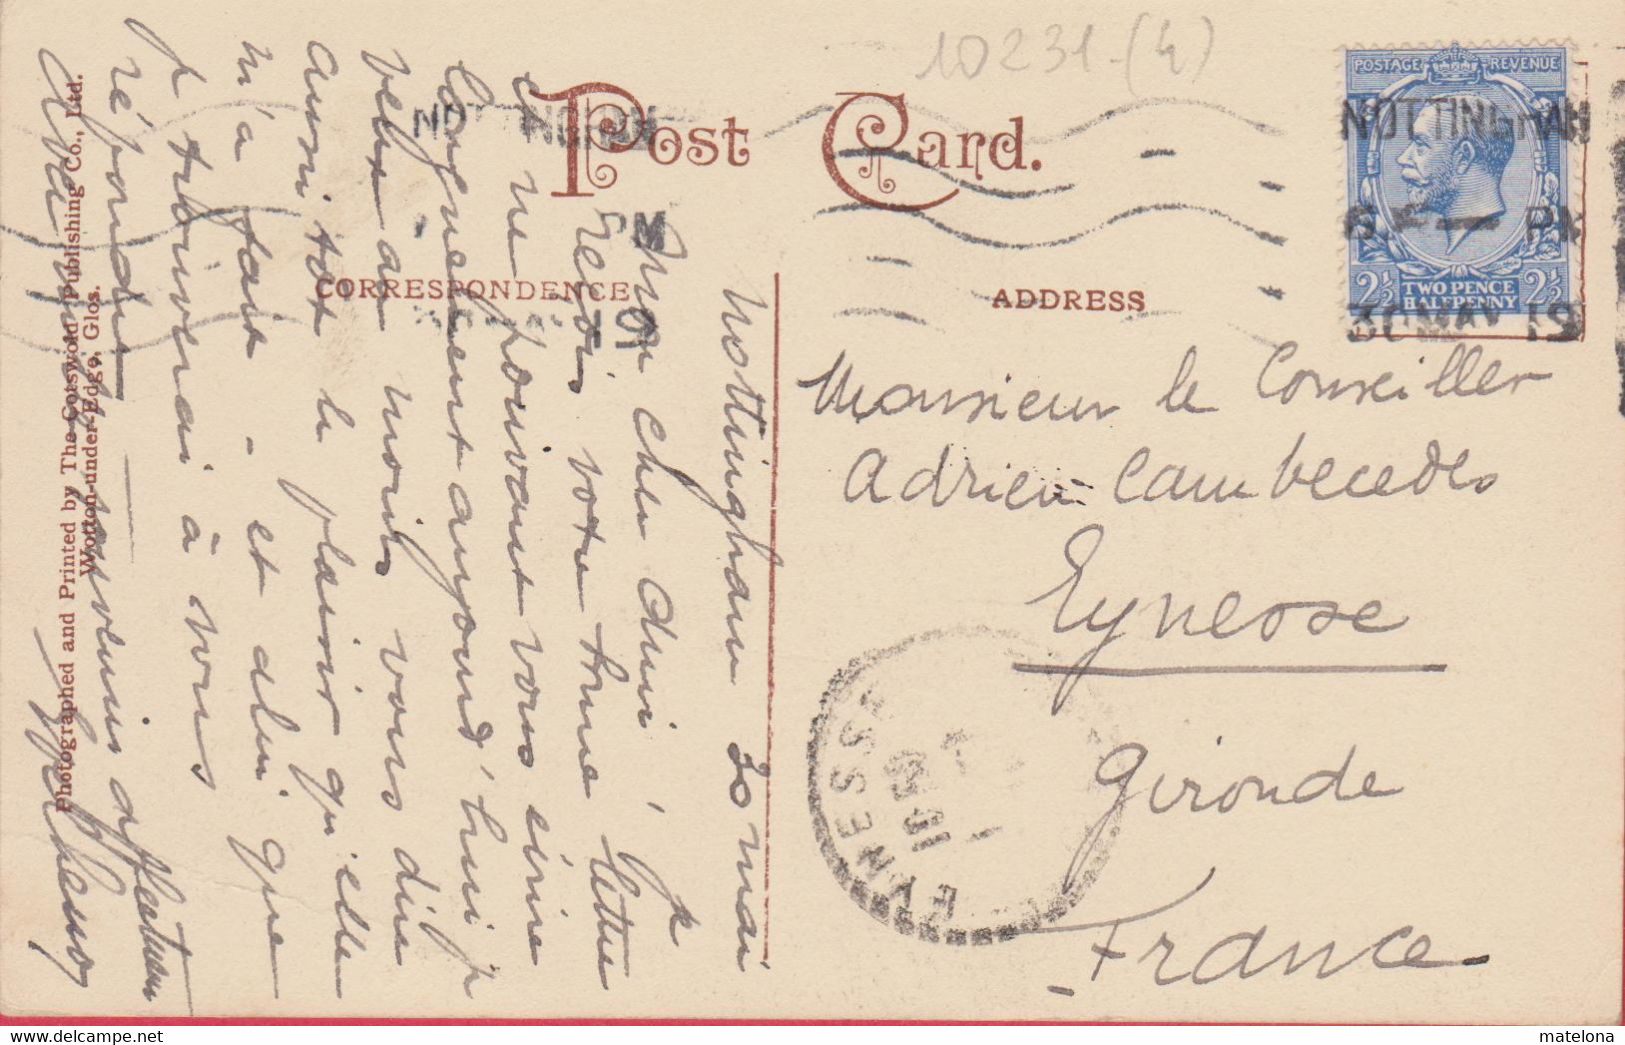 10231-(4)
Post Card.
CORRESPONDENCE
ADDRESS
POSTAGE REVENUE
2½ TWO PENCE HALFPENNY 2½
NOTTINGHAM
PM
30 MAY 19
Nottingham 30 mai
Mon cher ami, je
reçois votre bonne lettre
et ne pouvant vous écrire
longuement aujourd'hui je
veux au moins vous dire
aussitôt le plaisir qu'elle
m'a fait - et afin que
je trouverai à vous
répondre
affectueux
Monsieur le Conseiller
Adrien Cambecedes
Eynesse
Gironde
France
EYNESSE
Photographed and Printed by The Cotswold Publishing Co., Ltd.
Wotton-under-Edge, Glos.
matelona